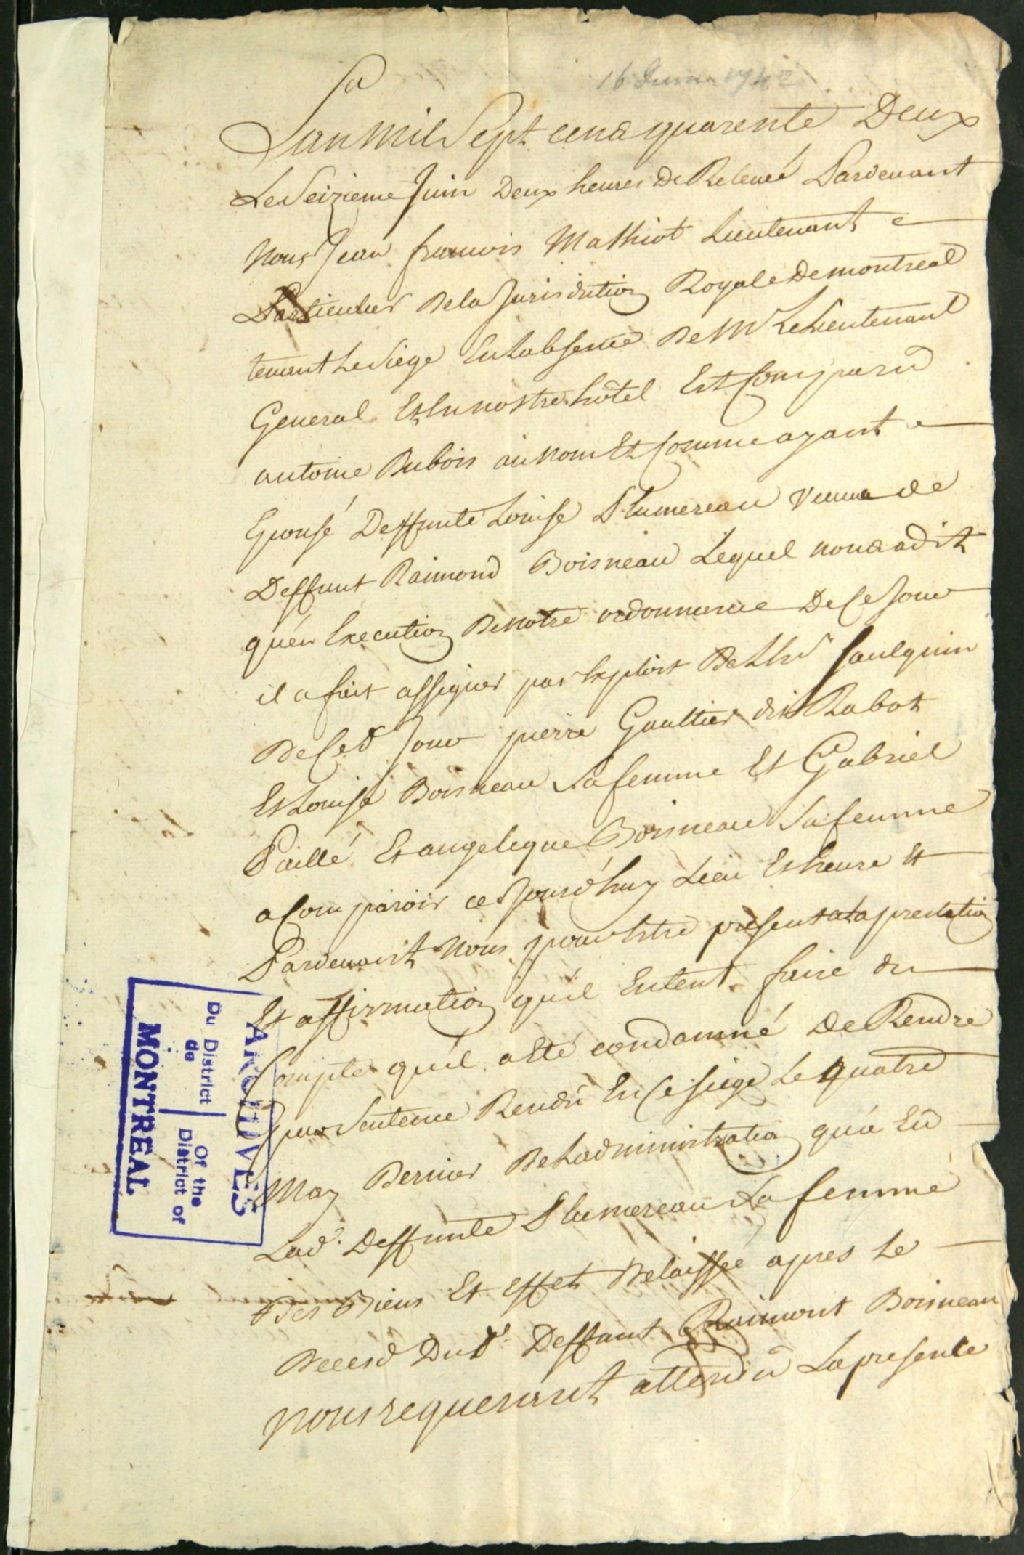 16 Juin 1742
Lan Mil Sept cens quarente Deux
Le Seizieme Juin Deux heures De Relevée Pardevant
Nous Jean francois Mathiot Lieutenant
Particulier De la Jurisdiction Royale De montreal
tenant Le Siege En Labsence De Mr Le Lieutenant
General Et En nostre hôtel Est Comparu
antoine Dubois au nom Et Comme ayant
Epousé Deffunte Louise Plumereau veuve de
Deffunt Raimond Boisneau Lequel nous a dit
qu'en Execution De notre ordonnance De Ce Jour
il a fait assigner par Exploit De Lhr Jaulquin
De Ced Jour pierre Gaultier dit Rabot
Et Louise Boisneau Sa femme Et Gabriel
Paillé Et angelique Boisneau Sa femme
a Comparoir ce Jourd'huy Lieu Et heure Et
Pardevant Nous pour Estre present a La prestation
Et affirmation qu'il Entent faire du
Compte qu'il a Eté condamné De Rendre
par Sentence Rendu En Ce Siege Le quatre
May Dernier De Ladministration qu'a Eu
Lad. Deffunte Plumereau Sa femme
Des Biens Et Effets Delaissée apres Le
Deces Dud. Deffunt Raimont Boisneau
nous requerant attendu La presente
ARCHIVES
Du District
de
Of the
District of
MONTREAL